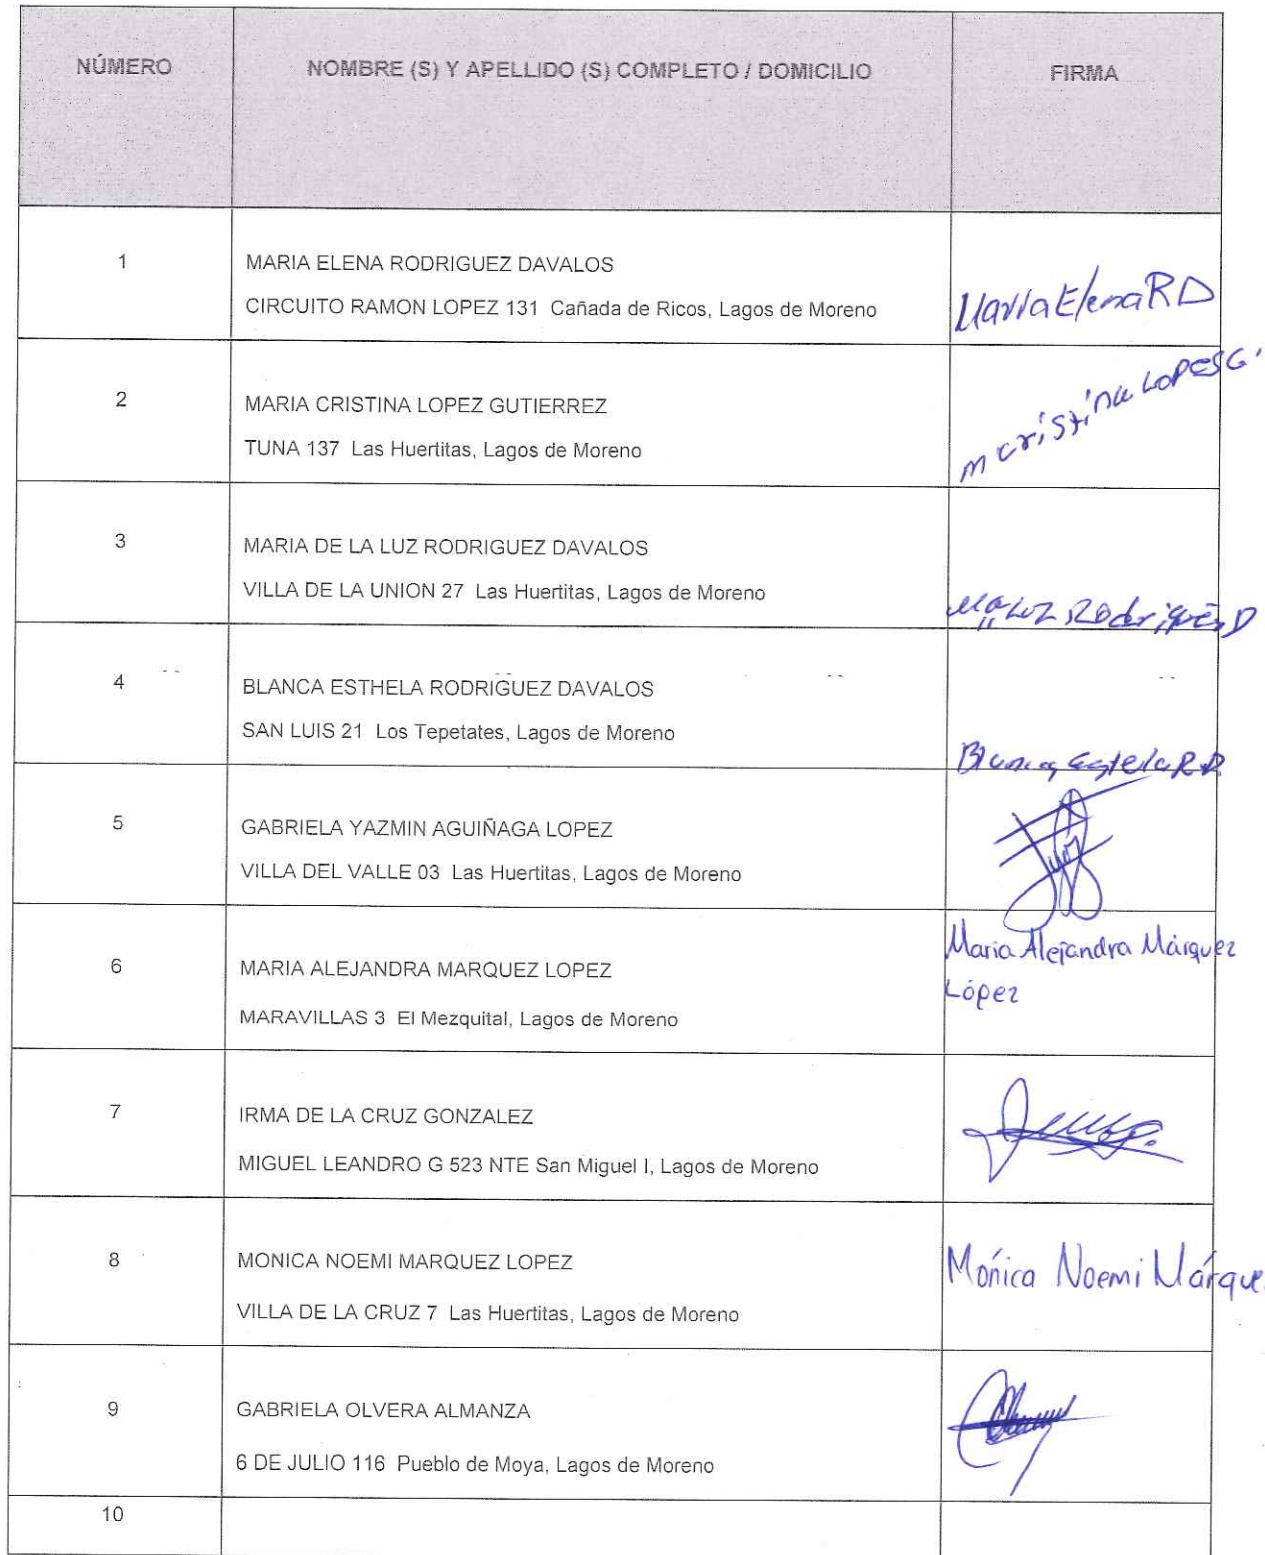 NÚMERO NOMBRE (S) Y APELLIDO (S) COMPLETO / DOMICILIO FIRMA
1 MARIA ELENA RODRIGUEZ DAVALOS
CIRCUITO RAMON LOPEZ 131 Cañada de Ricos, Lagos de Moreno
María Elena R D
2 MARIA CRISTINA LOPEZ GUTIERREZ
TUNA 137 Las Huertitas, Lagos de Moreno
m cristina LOPES G.
3 MARIA DE LA LUZ RODRIGUEZ DAVALOS
VILLA DE LA UNION 27 Las Huertitas, Lagos de Moreno
Ma Luz Rodriguez D
4 BLANCA ESTHELA RODRIGUEZ DAVALOS
SAN LUIS 21 Los Tepetates, Lagos de Moreno
Blanca Estela R D.
5 GABRIELA YAZMIN AGUIÑAGA LOPEZ
VILLA DEL VALLE 03 Las Huertitas, Lagos de Moreno
6 MARIA ALEJANDRA MARQUEZ LOPEZ
MARAVILLAS 3 El Mezquital, Lagos de Moreno
Maria Alejandra Márquez
López
7 IRMA DE LA CRUZ GONZALEZ
MIGUEL LEANDRO G 523 NTE San Miguel I, Lagos de Moreno
8 MONICA NOEMI MARQUEZ LOPEZ
VILLA DE LA CRUZ 7 Las Huertitas, Lagos de Moreno
Mónica Noemi Márque
9 GABRIELA OLVERA ALMANZA
6 DE JULIO 116 Pueblo de Moya, Lagos de Moreno
10